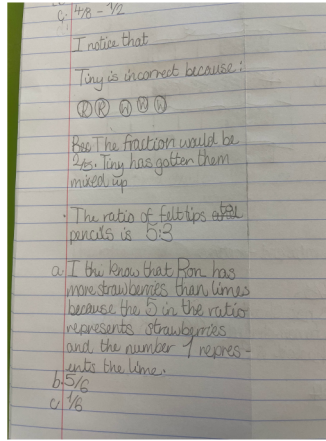 c. 4/8 - 1/2
I notice that
Tiny is incorrect because:
R R W W W
The fraction would be
2/5. Tiny has gotten them
mixed up
· The ratio of felt tips
pencils is 5:3
a. I know that Ron has
more strawberries than limes
because the 5 in the ratio
represents strawberries
and the number 1 repres-
ents the lime.
b. 5/6
c. 1/6